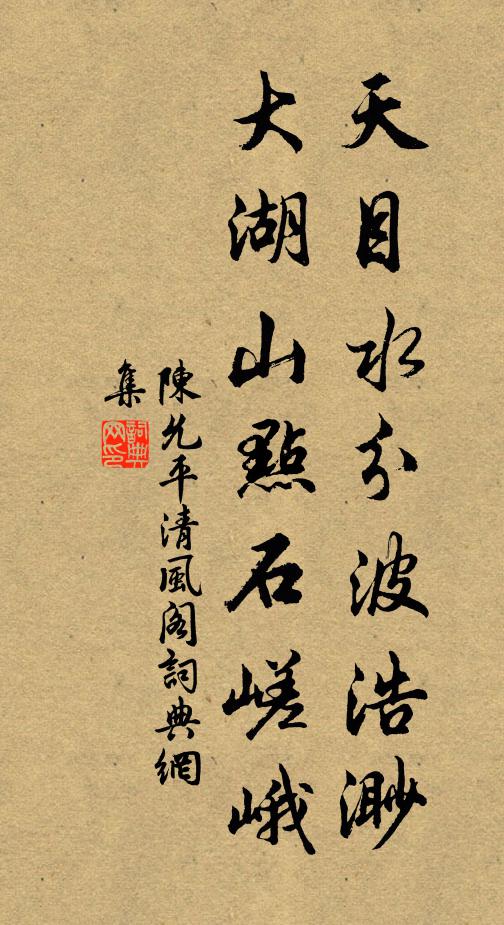 天目水分波浩渺
大湖山點石嵯峨
陳允平清風閣詞典網
集
詞典網印